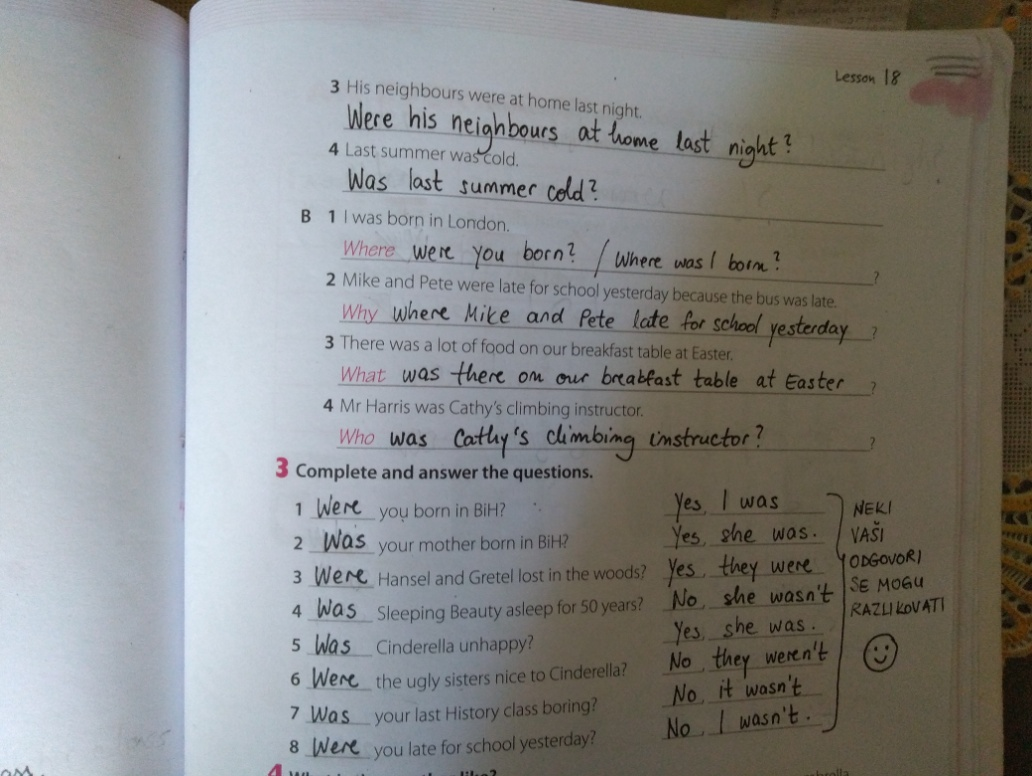 Lesson 18
3 His neighbours were at home last night.
Were his neighbours at home last night?
4 Last summer was cold.
Was last summer cold?
B 1 I was born in London.
Where were you born? / Where was I born? ?
2 Mike and Pete were late for school yesterday because the bus was late.
Why where Mike and Pete late for school yesterday ?
3 There was a lot of food on our breakfast table at Easter.
What was there on our breakfast table at Easter ?
4 Mr Harris was Cathy's climbing instructor.
Who was Cathy's climbing instructor? ?
3 Complete and answer the questions.
1 Were you born in BiH? Yes, I was
2 Was your mother born in BiH? Yes, she was.
3 Were Hansel and Gretel lost in the woods? Yes, they were
4 Was Sleeping Beauty asleep for 50 years? No, she wasn't
5 Was Cinderella unhappy? Yes, she was.
6 Were the ugly sisters nice to Cinderella? No, they weren't
7 Was your last History class boring? No, it wasn't
8 Were you late for school yesterday? No, I wasn't.
NEKI
VAŠI
ODGOVORI
SE MOGU
RAZLIKOVATI